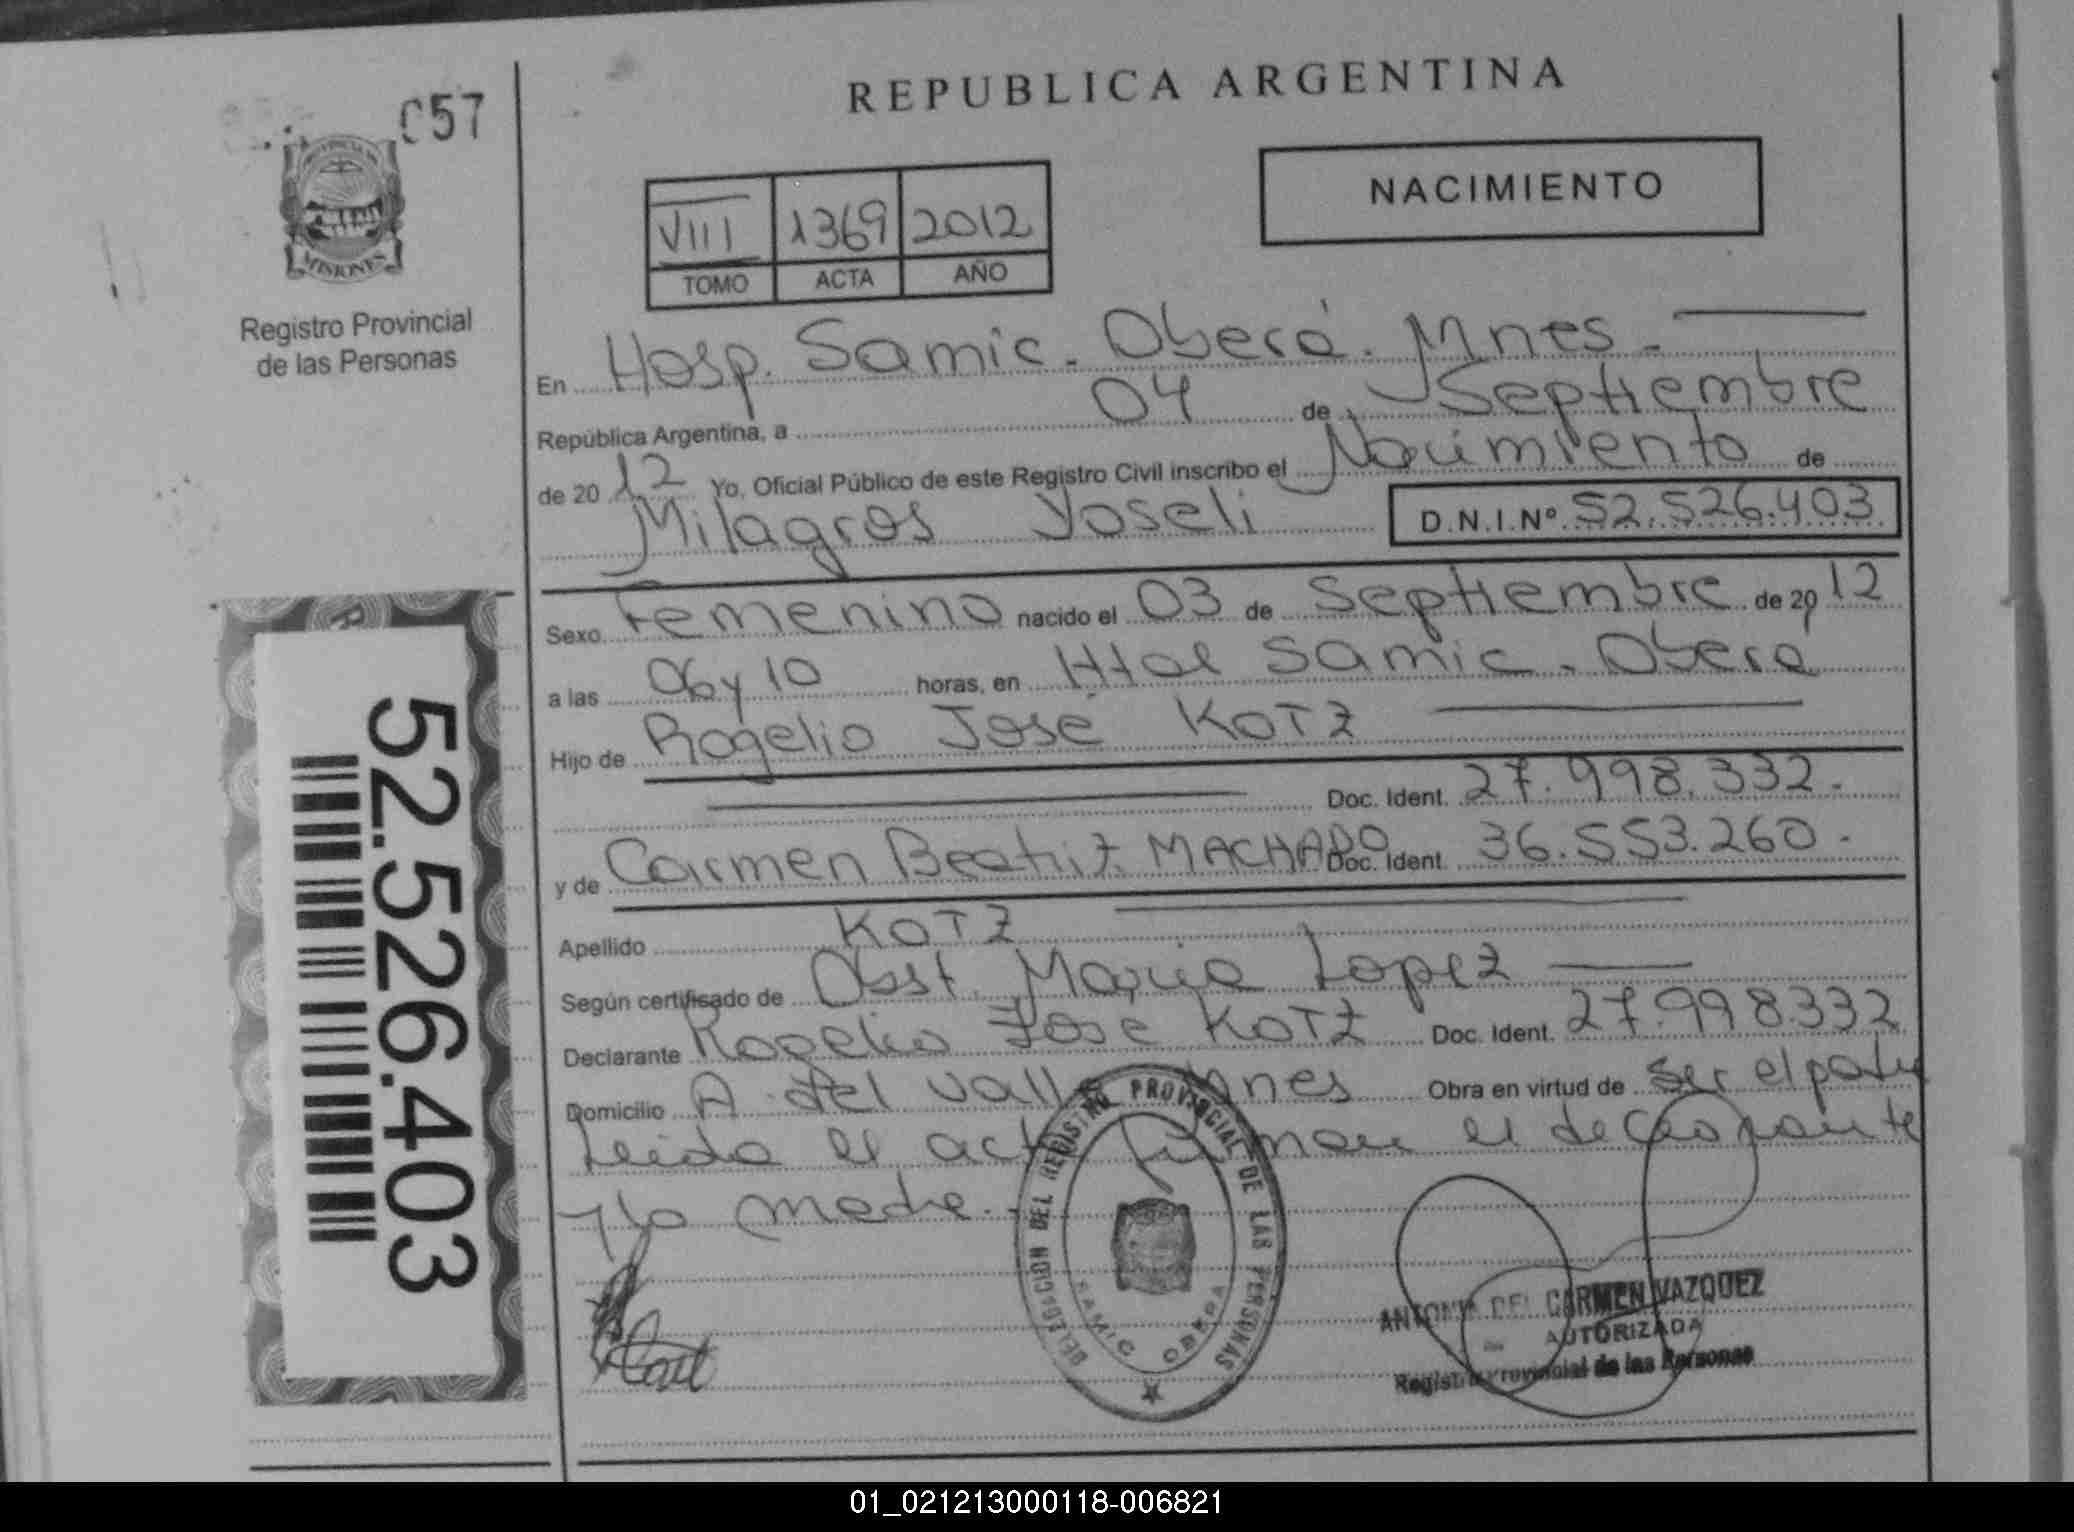 057
PROVINCIA DE
MISIONES
Registro Provincial
de las Personas
REPUBLICA ARGENTINA
NACIMIENTO
VIII 1369 2012
TOMO ACTA AÑO
En Hosp. Samic - Oberá. Mnes -
República Argentina, a 04 de Septiembre
de 2012 Yo, Oficial Público de este Registro Civil inscribo el Nacimiento de
Milagros Yoseli D.N.I.Nº 52.526.403
Sexo Femenino nacido el 03 de Septiembre de 2012
a las 06 y 10 horas, en Htal Samic - Oberá
Hijo de Rogelio José KOTZ
Doc. Ident. 27.998.332.
y de Carmen Beatriz MACHADO Doc. Ident. 36.553.260.
Apellido KOTZ
Según certificado de Obst. Maria Lopez
Declarante Rogelio Jose KOTZ Doc. Ident. 27.998.332
Domicilio A. del Valle Mnes Obra en virtud de ser el padre
Leida el acta firman el declarante
y la madre.
52.526.403
DELEGACION DEL REGISTRO PROVINCIAL DE LAS PERSONAS
SAMIC OBERA
ANTONIA DEL CARMEN VAZQUEZ
AUTORIZADA
Registro Provincial de las Personas
01_021213000118-006821